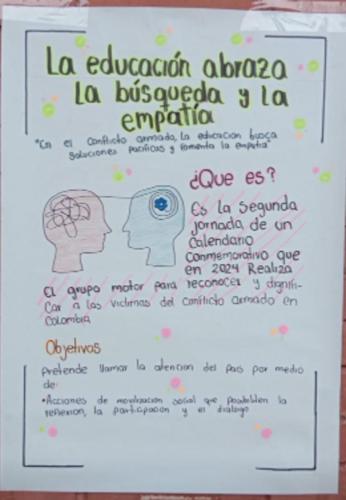 La educación abraza
La búsqueda y la
empatía
"En el conflicto armado, la educacion busca
soluciones pacificas y fomenta la empatia"
¿Que es?
Es la Segunda
jornada de un
Calendario
Conmemorativo que
en 2024 Realiza
El grupo motor para reconocer y dignifi-
Car a las victimas del conflicto armado en
Colombia
Objetivos
Pretende llamar la atencion del País por medio
de:
•Acciones de movilizacion social que posibiliten la
reflexion, la participacion y el dialogo